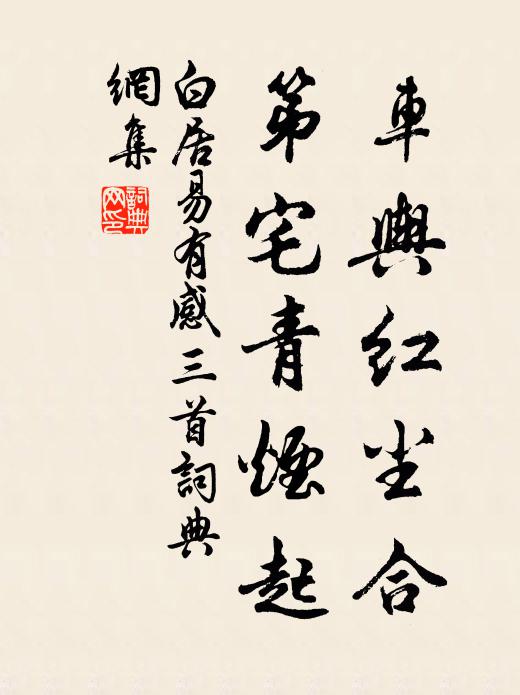 車輿紅尘合
第宅青煙起
白居易有感三首詞典
網集
詞典
网印